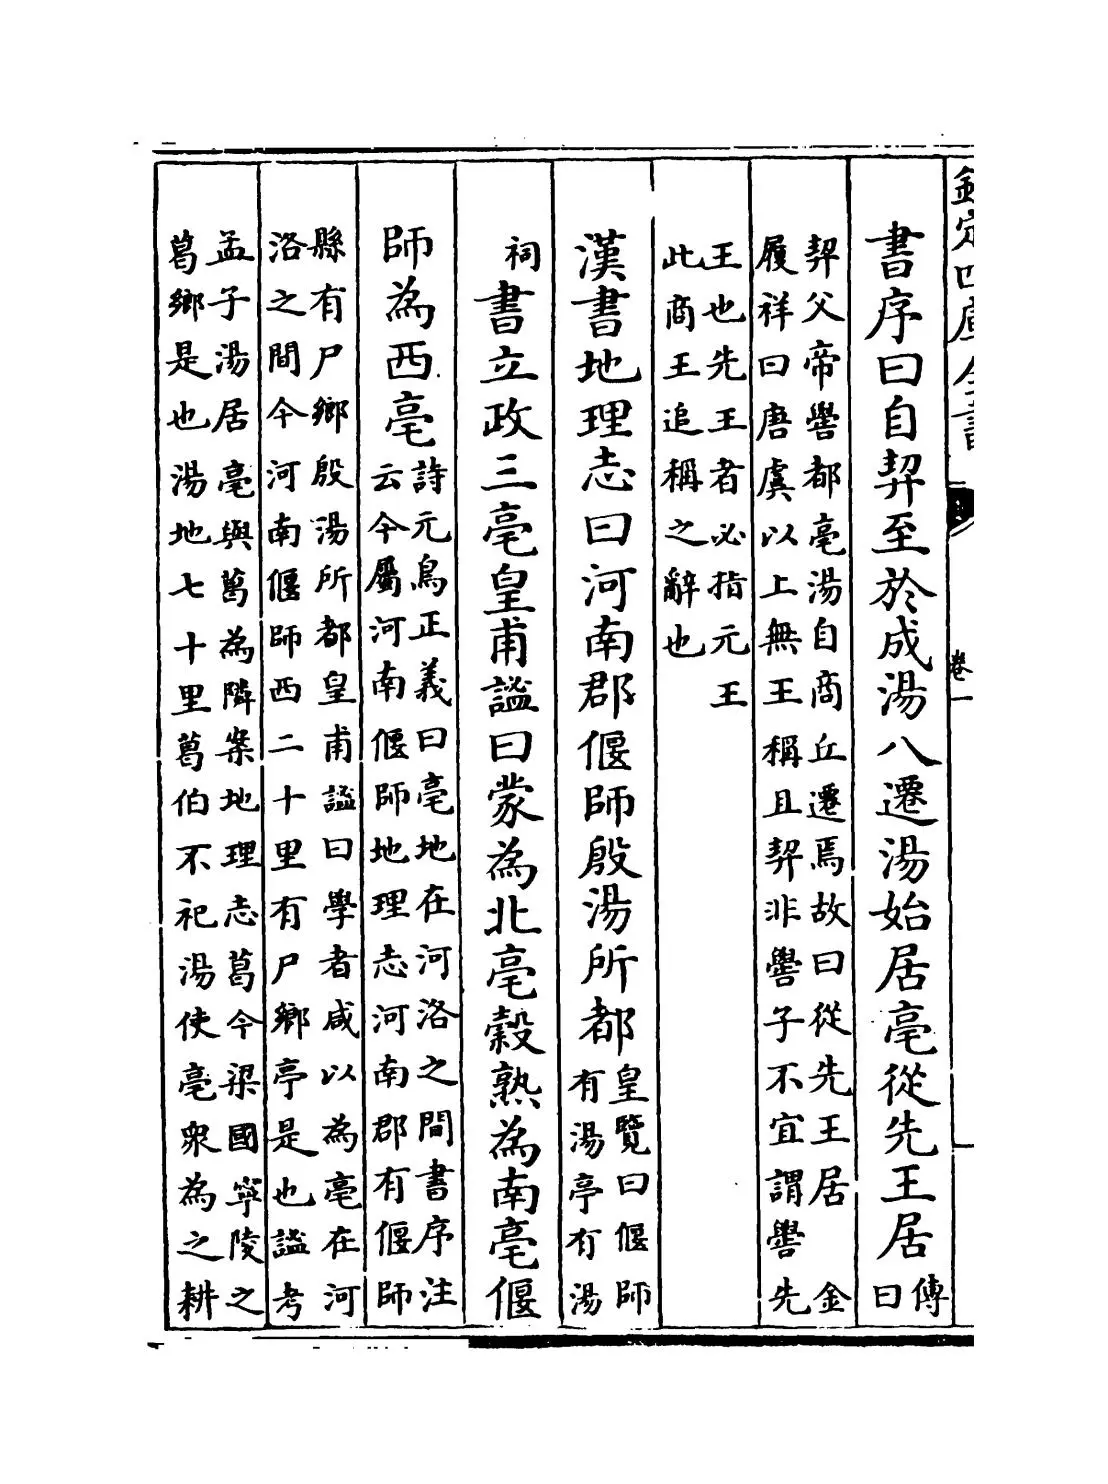 欽定四庫全書
卷一
書序曰自契至於成湯八遷湯始居亳從先王居傳
曰
契父帝嚳都亳湯自商丘遷焉故曰從先王居　金
履祥曰唐虞以上無王稱且契非嚳子不宜謂嚳先
王也先王者必指元王
此商王追稱之辭也
漢書地理志曰河南郡偃師殷湯所都皇覽曰偃師
有湯亭有湯
祠　書立政三亳皇甫謐曰蒙為北亳穀熟為南亳偃
師為西亳詩元鳥正義曰亳地在河洛之間書序注
云今屬河南偃師地理志河南郡有偃師
縣有尸鄉殷湯所都皇甫謐曰學者咸以為亳在河
洛之間今河南偃師西二十里有尸鄉亭是也謐考
孟子湯居亳與葛為隣案地理志葛今梁國寧陵之
葛鄉是也湯地七十里葛伯不祀湯使亳衆為之耕